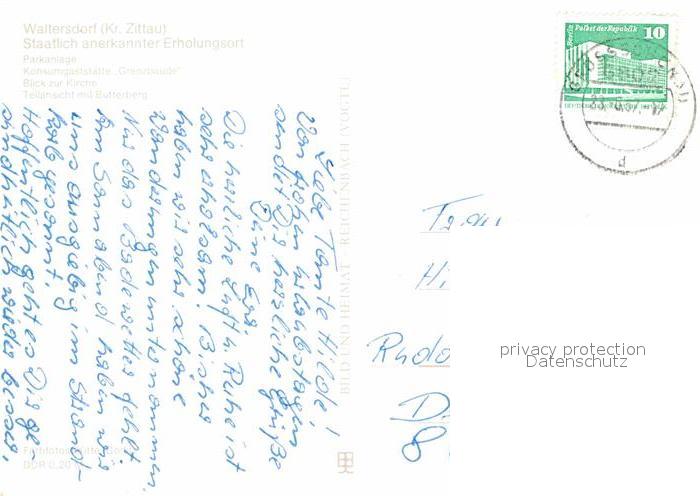 Waltersdorf (Kr. Zittau)
Staatlich anerkannter Erholungsort
Parkanlage
Konsumgaststätte „Grenzbaude"
Blick zur Kirche
Teilansicht mit Butterberg
Liebe Tante Hilde!
Von frohen Urlaubstagen
sendet Dir herzliche Grüße
Deine
Die herrliche Luft u. Ruhe ist
sehr erholsam. Bisher
haben wir sehr schöne
Wanderungen unternommen.
Nur das Badewetter fehlt.
Am Sonnabend haben wir
uns ausgiebig im Strand-
korb gesonnt.
Hoffentlich geht es Dir ge-
sundheitlich wieder besser.
DDR 0,20 M
BILD UND HEIMAT REICHENBACH (VOGTL)
Berlin Palast der Republik
10
Frau
Hi
Rudo
D
8
privacy protection
Datenschutz